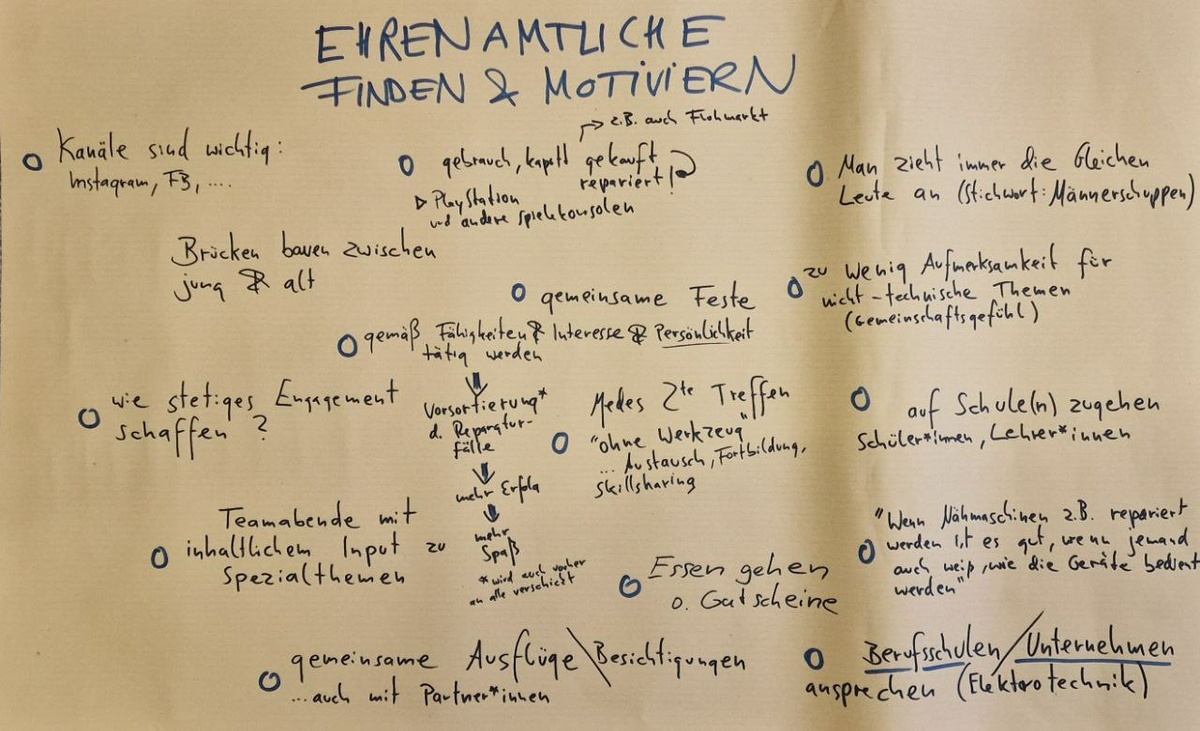 EHRENAMTLICHE
FINDEN & MOTIVIERN
Kanäle sind wichtig:
Instagram, FB, ....
Brücken bauen zwischen
jung & alt
z.B. auch Flohmarkt
gebrauch, kaputt gekauft
repariert!
PlayStation
und andere Spielekonsolen
Man zieht immer die Gleichen
Leute an (Stichwort: Männerschuppen)
zu wenig Aufmerksamkeit für
nicht-technische Themen
(Gemeinschaftsgefühl)
gemeinsame Feste
gemäß Fähigkeiten & Interesse & Persönlichkeit
tätig werden
Vorsortierung*
d. Reparatur-
fälle
mehr Erfolg
mehr
Spaß
*wird auch vorher
an alle verschickt
wie stetiges Engagement
schaffen?
Treffen
"ohne Werkzeug"
... Austausch, Fortbildung,
Skillsharing
auf Schule(n) zugehen
Schüler*innen, Lehrer*innen
Teamabende mit
inhaltlichem Input zu
Spezialthemen
Essen gehen
o. Gutscheine
"Wenn Nähmaschinen z.B. repariert
werden ist es gut, wenn jemand
auch weiß, wie die Geräte bedient
werden"
gemeinsame Ausflüge\Besichtigungen
...auch mit Partner*innen
Berufsschulen/Unternehmen
ansprechen (Elektrotechnik)